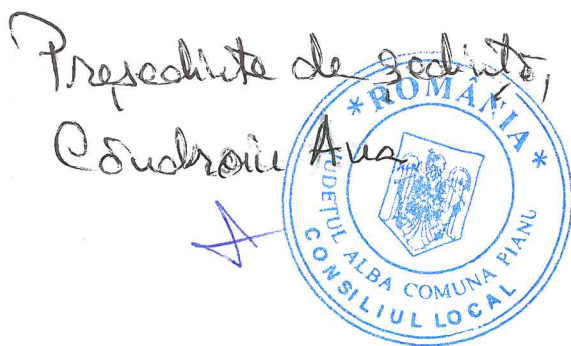 Președinte de ședință,
Condroiu Ana
* ROMÂNIA *
JUDEȚUL ALBA COMUNA PIANU
CONSILIUL LOCAL